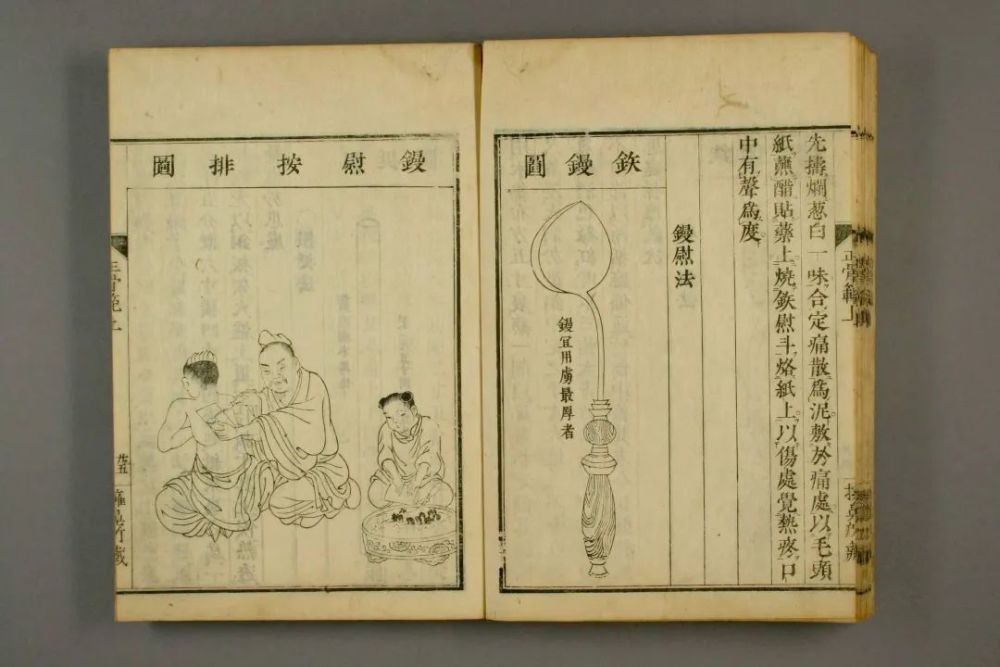 先擣爛葱白一味合定痛散爲泥敷於痛處以毛頭
紙蘸醋貼藥上燒鉄慰斗烙紙上以傷處覺熱疼口
中有聲爲度
鏝慰法
鉄鏝圖
鏝宜用最厚者
正骨範上
鏝慰按排圖
正骨範上
廿五